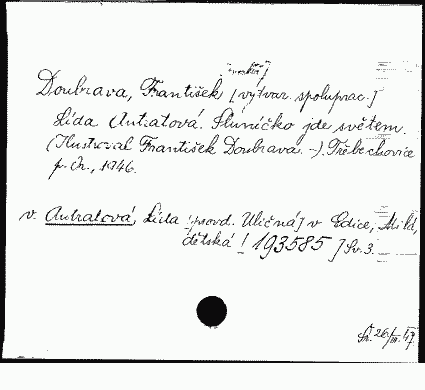 Doubrava, František [výtvar. spoluprac.]
Lída Antratová. Sluníčko jde světem.
(Ilustroval František Doubrava. -) Třebechovice
p. Or., 1946.
v. Antratová, Lída [provd. Uličná] v Edice, Mlád,
dětská ! 193585 ] Sv. 3.